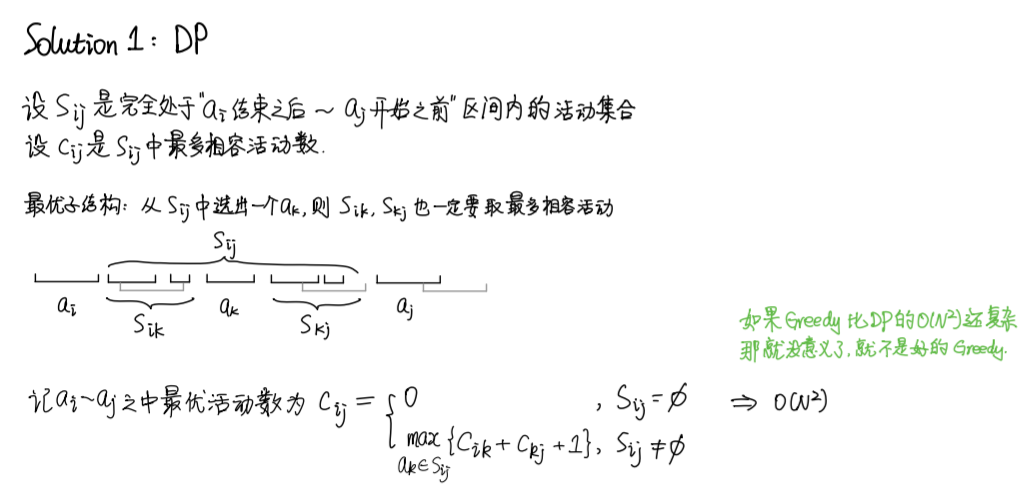 Solution 1: DP
设 Sij 是完全处于"ai 结束之后 ~ aj 开始之前"区间内的活动集合
设 Cij 是 Sij 中最多相容活动数.
最优子结构: 从 Sij 中选出一个 ak, 则 Sik, Skj 也一定要取最多相容活动
Sij
ai Sik ak Skj aj
如果 Greedy 比 DP 的 O(N²) 还复杂
那就没意义了, 就不是好的 Greedy.
记 ai~aj 之中最优活动数为 Cij = { 0 , Sij = ∅ ⇒ O(N²)
max {Cik + Ckj + 1}, Sij ≠ ∅
ak∈Sij